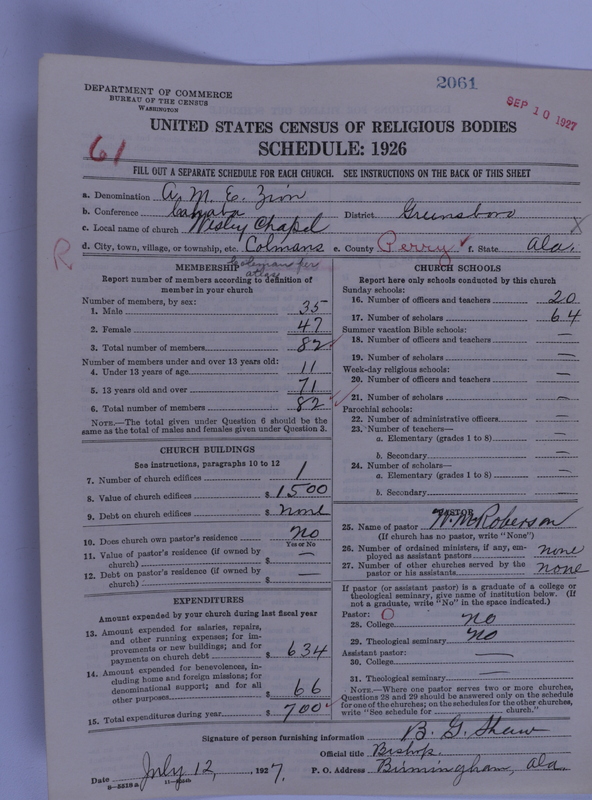 2061
SEP 10 1927
DEPARTMENT OF COMMERCE
BUREAU OF THE CENSUS
WASHINGTON
UNITED STATES CENSUS OF RELIGIOUS BODIES
SCHEDULE: 1926
61
FILL OUT A SEPARATE SCHEDULE FOR EACH CHURCH. SEE INSTRUCTIONS ON THE BACK OF THIS SHEET
a. Denomination A. M. E. Zion
b. Conference Cahaba District Greensboro
c. Local name of church Wesley Chapel
d. City, town, village, or township, etc. Colmans e. County Perry f. State Ala.
R
Coleman per atlas
MEMBERSHIP
Report number of members according to definition of
member in your church
Number of members, by sex:
1. Male 35
2. Female 47
3. Total number of members 82
Number of members under and over 13 years old:
4. Under 13 years of age 11
5. 13 years old and over 71
6. Total number of members 82
NOTE.—The total given under Question 6 should be
same as the total of males and females given under Question 3.
CHURCH BUILDINGS
See instructions, paragraphs 10 to 12
7. Number of church edifices 1
8. Value of church edifices $ 1500
9. Debt on church edifices $ none
10. Does church own pastor's residence no
Yes or No
11. Value of pastor's residence (if owned by
church) $ —
12. Debt on pastor's residence (if owned by
church) $ —
EXPENDITURES
Amount expended by your church during last fiscal year
13. Amount expended for salaries, repairs,
and other running expenses; for im-
provements or new buildings; and for
payments on church debt $ 634
14. Amount expended for benevolences, in-
cluding home and foreign missions; for
denominational support; and for all
other purposes $ 66
15. Total expenditures during year $ 700
CHURCH SCHOOLS
Report here only schools conducted by this church
Sunday schools:
16. Number of officers and teachers 20
17. Number of scholars 64
Summer vacation Bible schools:
18. Number of officers and teachers —
19. Number of scholars —
Week-day religious schools:
20. Number of officers and teachers —
21. Number of scholars —
Parochial schools:
22. Number of administrative officers —
23. Number of teachers—
a. Elementary (grades 1 to 8) —
b. Secondary —
24. Number of scholars—
a. Elementary (grades 1 to 8) —
b. Secondary —
PASTOR
25. Name of pastor W. M. Roberson
(If church has no pastor, write "None")
26. Number of ordained ministers, if any, em-
ployed as assistant pastors none
27. Number of other churches served by the
pastor or his assistants none
If pastor (or assistant pastor) is a graduate of a college or
theological seminary, give name of institution below. (If
not a graduate, write "No" in the space indicated.)
Pastor: O
28. College no
29. Theological seminary no
Assistant pastor:
30. College —
31. Theological seminary —
NOTE.—Where one pastor serves two or more churches,
Questions 28 and 29 should be answered only on the schedule
for one of the churches; on the schedules for the other churches,
write "See schedule for church."
Signature of person furnishing information B. G. Shaw
Official title Bishop.
Date July 12, 1927. P. O. Address Birmingham, Ala.